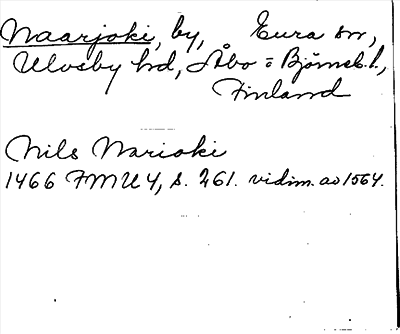 Naarjoki, by, Eura sn,
Ulvsby hd, Åbo = Björneb. l.,
Finland
Nils Narioki
1466 FMU 4, s. 261. vidim. ao 1564.